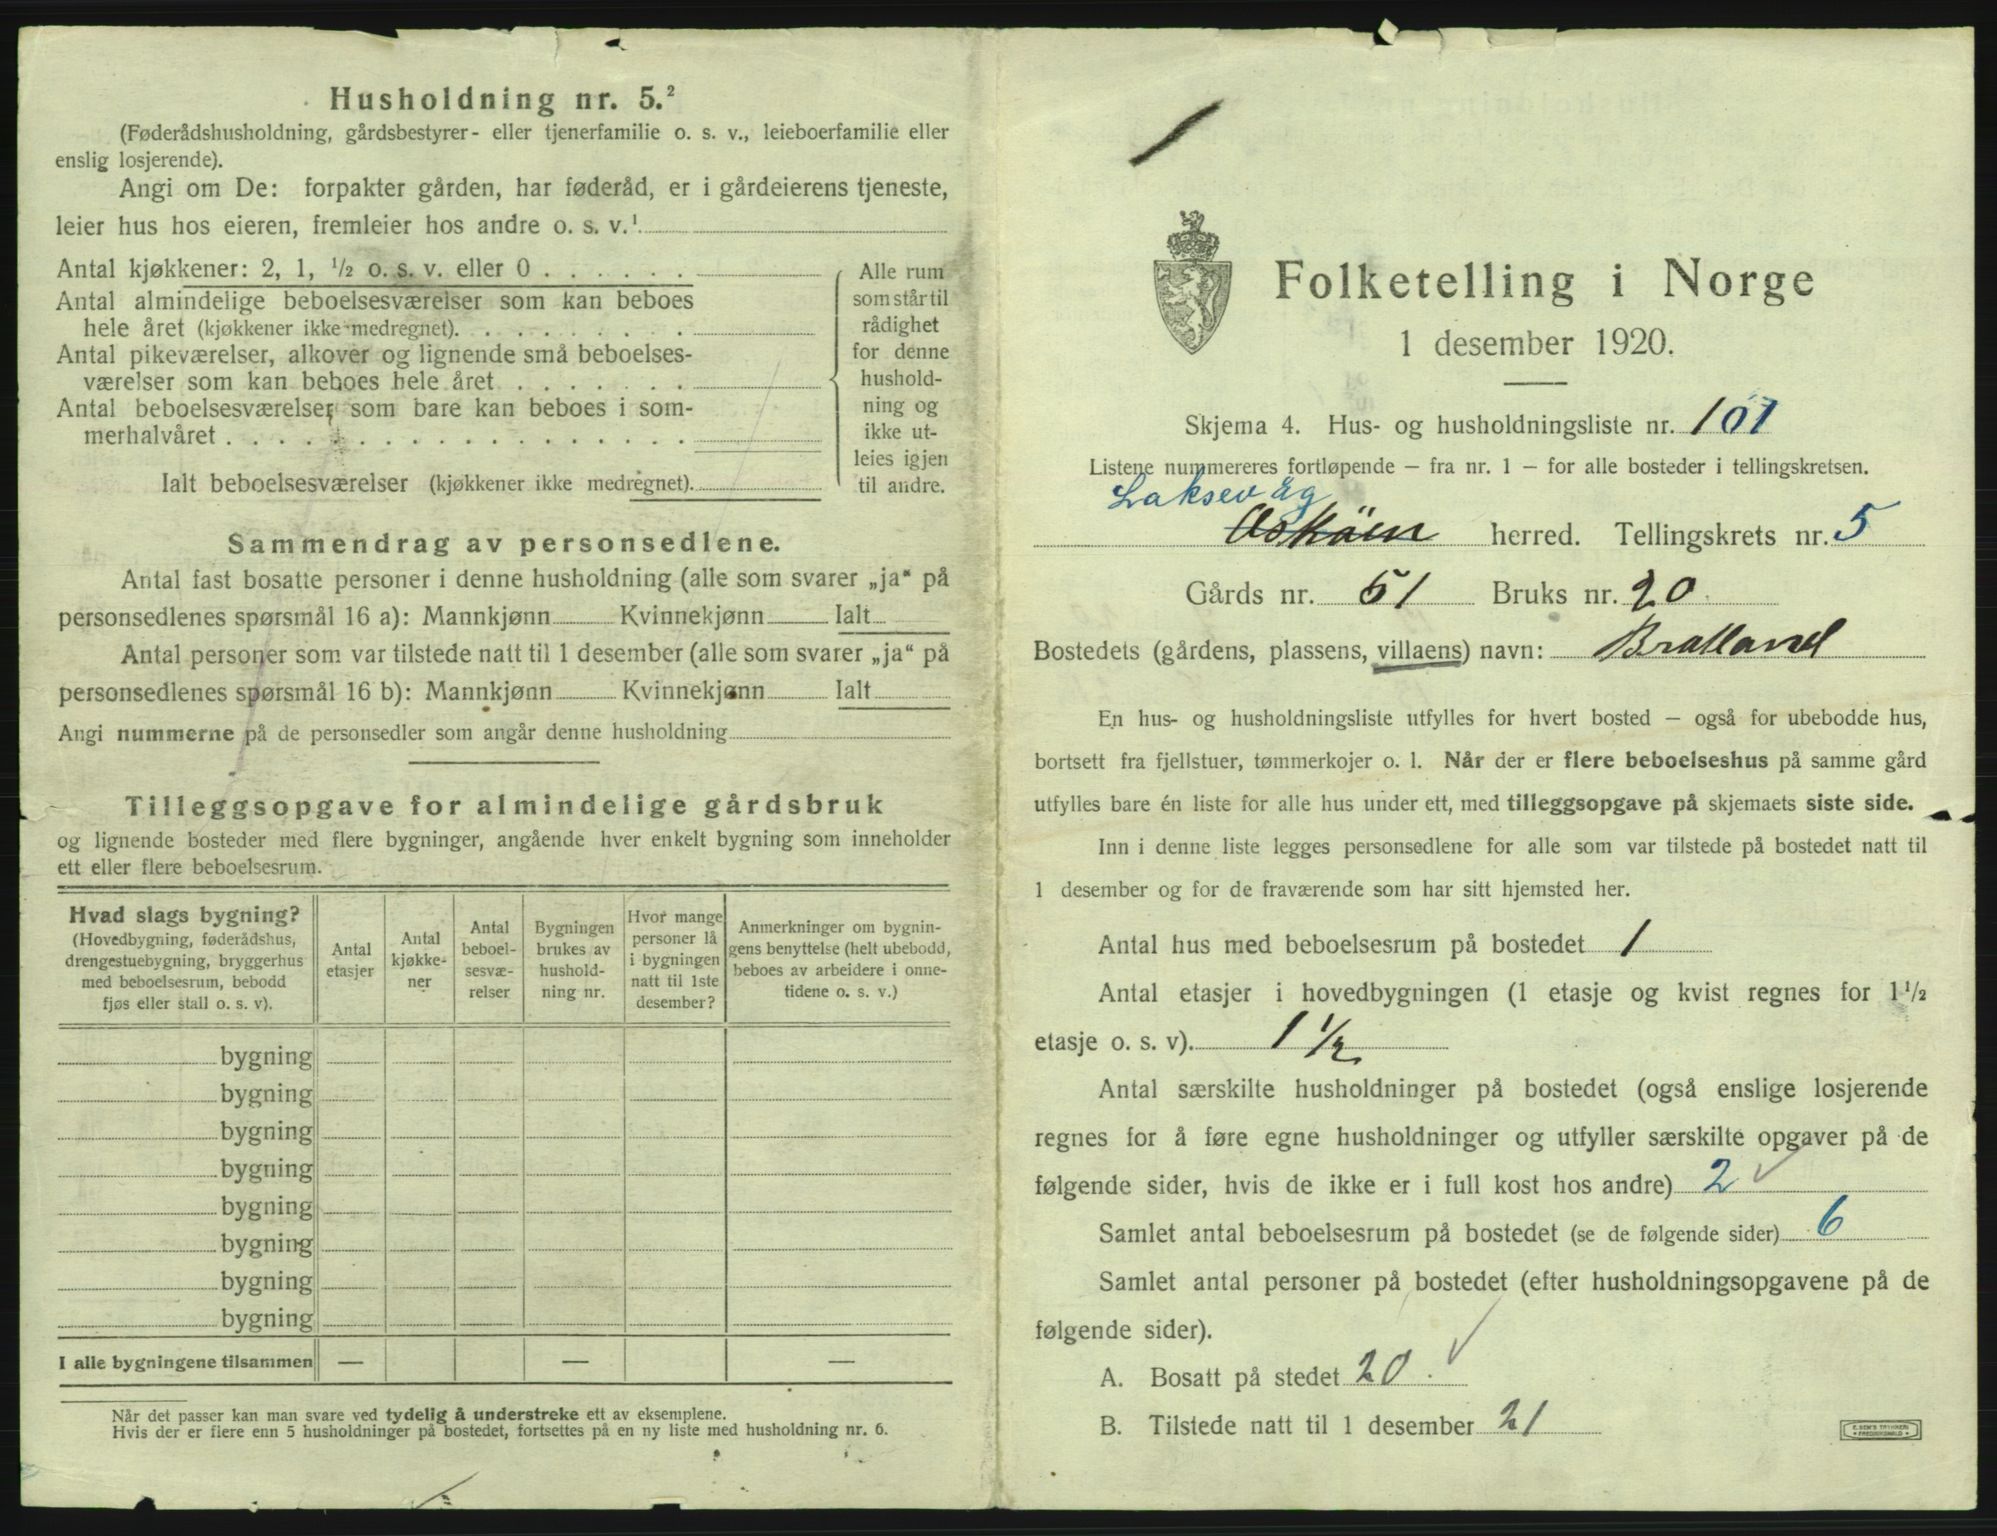 Husholdning nr. 5.²
(Føderådshusholdning, gårdsbestyrer- eller tjenerfamilie o. s. v., leieboerfamilie eller
enslig losjerende).
Angi om De: forpakter gården, har føderåd, er i gårdeierens tjeneste,
leier hus hos eieren, fremleier hos andre o. s. v.¹
Antal kjøkkener: 2, 1, ½ o. s. v. eller 0 . . . . . .
Antal almindelige beboelsesværelser som kan beboes
hele året (kjøkkener ikke medregnet). . . . . . . . .
Antal pikeværelser, alkover og lignende små beboelses-
værelser som kan beboes hele året . . . . . . .
Antal beboelsesværelser som bare kan beboes i som-
merhalvåret . . . . . . . . . . . . . . . . . .
Ialt beboelsesværelser (kjøkkener ikke medregnet).
Alle rum
som står til
rådighet
for denne
hushold-
ning og
ikke ut-
leies igjen
til andre.
Sammendrag av personsedlene.
Antal fast bosatte personer i denne husholdning (alle som svarer „ja“ på
personsedlenes spørsmål 16 a): Mannkjønn Kvinnekjønn Ialt
Antal personer som var tilstede natt til 1 desember (alle som svarer „ja“ på
personsedlenes spørsmål 16 b): Mannkjønn Kvinnekjønn Ialt
Angi nummerne på de personsedler som angår denne husholdning
Tilleggsopgave for almindelige gårdsbruk
og lignende bosteder med flere bygninger, angående hver enkelt bygning som inneholder
ett eller flere beboelsesrum.
Hvad slags bygning?
(Hovedbygning, føderådshus,
drengestuebygning, bryggerhus
med beboelsesrum, bebodd
fjøs eller stall o. s. v).
Antal
etasjer
Antal
kjøkke-
ner
Antal
beboel-
sesvæ-
relser
Bygningen
brukes av
hushold-
ning nr.
Hvor mange
personer lå
i bygningen
natt til 1ste
desember?
Anmerkninger om bygnin-
gens benyttelse (helt ubebodd,
beboes av arbeidere i onne-
tidene o. s. v.)
bygning
bygning
bygning
bygning
bygning
bygning
bygning
bygning
I alle bygningene tilsammen — — —
Når det passer kan man svare ved tydelig å understreke ett av eksemplene.
Hvis der er flere enn 5 husholdninger på bostedet, fortsettes på en ny liste med husholdning nr. 6.
Folketelling i Norge
1 desember 1920.
Skjema 4. Hus- og husholdningsliste nr. 101
Listene nummereres fortløpende – fra nr. 1 – for alle bosteder i tellingskretsen.
Laksevåg
Askøen herred. Tellingskrets nr. 5
Gårds nr. 51 Bruks nr. 20
Bostedets (gårdens, plassens, villaens) navn: Bratland
En hus- og husholdningsliste utfylles for hvert bosted – også for ubebodde hus,
bortsett fra fjellstuer, tømmerkojer o. l. Når der er flere beboelseshus på samme gård
utfylles bare én liste for alle hus under ett, med tilleggsopgave på skjemaets siste side.
Inn i denne liste legges personsedlene for alle som var tilstede på bostedet natt til
1 desember og for de fraværende som har sitt hjemsted her.
Antal hus med beboelsesrum på bostedet 1
Antal etasjer i hovedbygningen (1 etasje og kvist regnes for 1½
etasje o. s. v). 1 ½
Antal særskilte husholdninger på bostedet (også enslige losjerende
regnes for å føre egne husholdninger og utfyller særskilte opgaver på de
følgende sider, hvis de ikke er i full kost hos andre) 2
Samlet antal beboelsesrum på bostedet (se de følgende sider) 6
Samlet antal personer på bostedet (efter husholdningsopgavene på de
følgende sider).
A. Bosatt på stedet 20
B. Tilstede natt til 1 desember 21